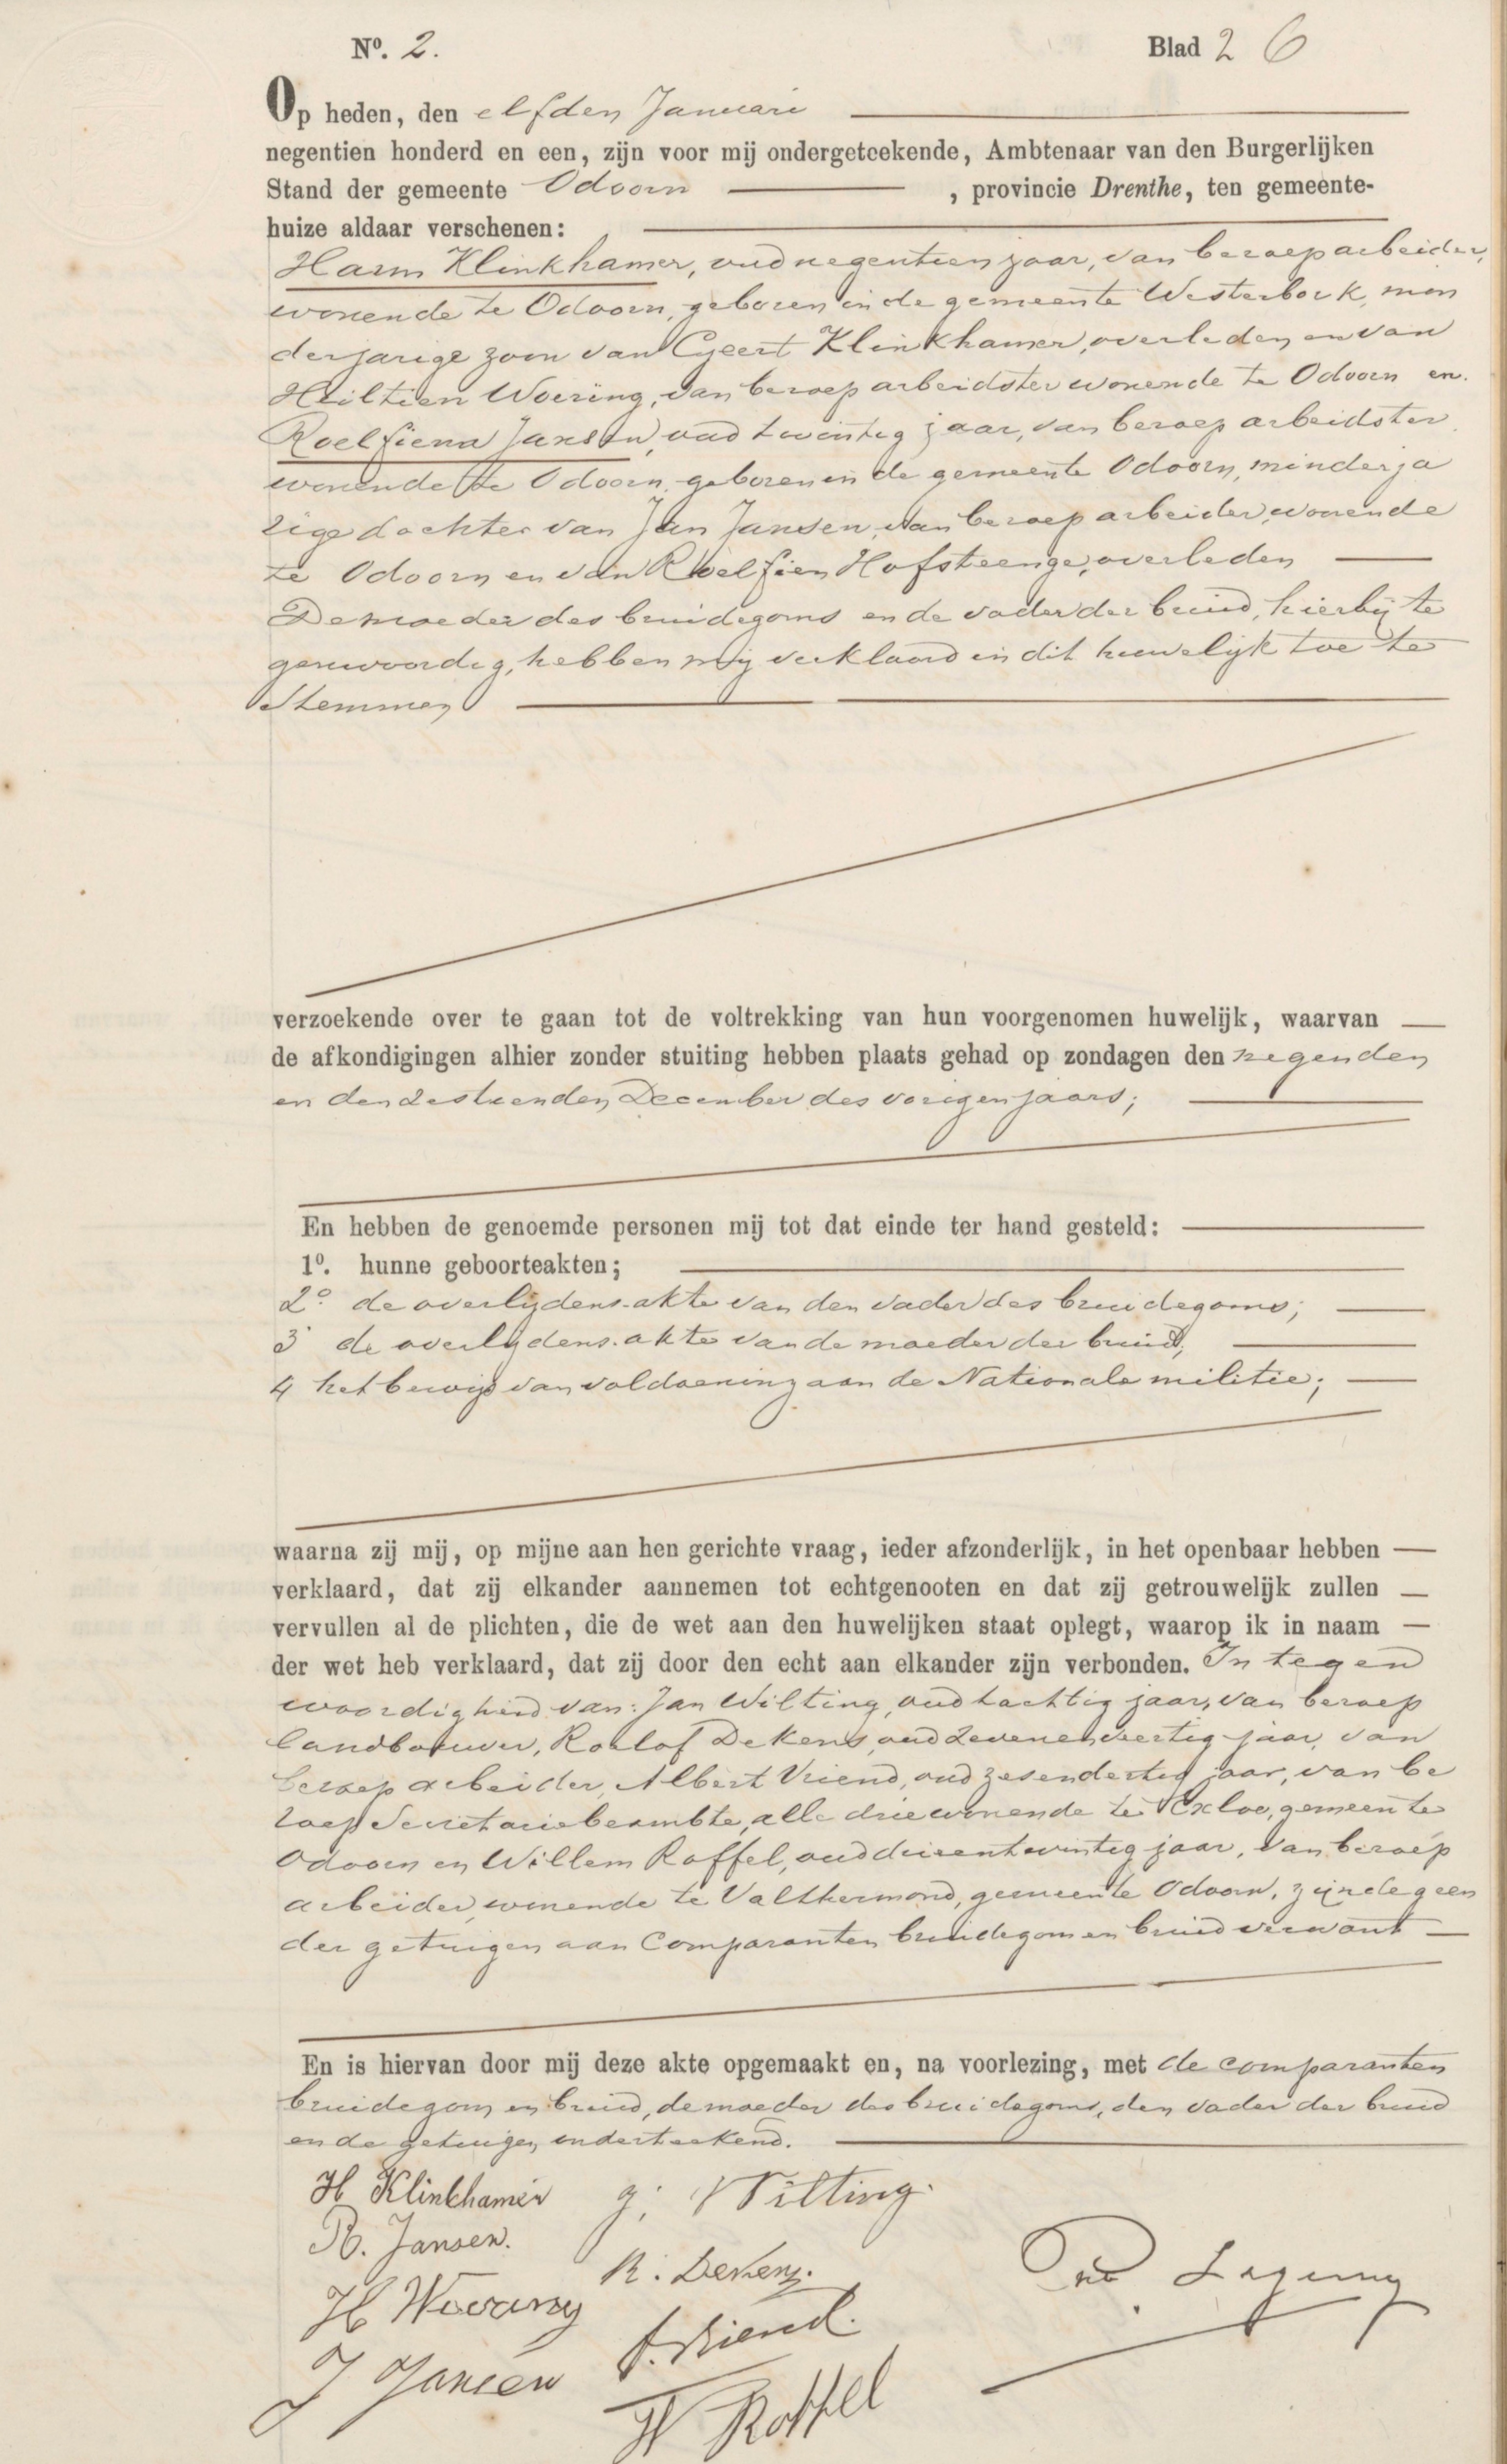 Nº. 2.
Blad 2 6
Op heden, den elfden Januari
negentien honderd en een, zijn voor mij ondergeteekende, Ambtenaar van den Burgerlijken
Stand der gemeente Odoorn , provincie Drenthe, ten gemeente-
huize aldaar verschenen:
Harm Klinkhamer, oud negentien jaar, van beroep arbeider,
wonende te Odoorn, geboren in de gemeente Westerbork, min
derjarige zoon van Geert Klinkhamer, overleden en van
Heiltien Woering, van beroep arbeidster wonende te Odoorn en
Roelfiena Jansen, oud twintig jaar, van beroep arbeidster
wonende te Odoorn, geboren in de gemeente Odoorn, minderja
rige dochter van Jan Jansen, van beroep arbeider, wonende
te Odoorn en van Roelfien Hofsteenge, overleden
De moeder des bruidegoms en de vader der bruid, hierbij te
genwoordig, hebben mij verklaard in dit huwelijk toe te
stemmen
verzoekende over te gaan tot de voltrekking van hun voorgenomen huwelijk, waarvan
de afkondigingen alhier zonder stuiting hebben plaats gehad op zondagen den negenden
en den zestienden December des vorigen jaars;
En hebben de genoemde personen mij tot dat einde ter hand gesteld:
1º. hunne geboorteakten;
2º de overlijdens-akte van den vader des bruidegoms;
3 de overlijdens-akte van de moeder der bruid;
4 het bewijs van voldoening aan de Nationale militie;
waarna zij mij, op mijne aan hen gerichte vraag, ieder afzonderlijk, in het openbaar hebben
verklaard, dat zij elkander aannemen tot echtgenooten en dat zij getrouwelijk zullen
vervullen al de plichten, die de wet aan den huwelijken staat oplegt, waarop ik in naam
der wet heb verklaard, dat zij door den echt aan elkander zijn verbonden. In tegen
woordigheid van: Jan Wilting, oud tachtig jaar, van beroep
landbouwer, Roelof Dekens, oud zevenenveertig jaar, van
beroep arbeider, Albert Vriend, oud zesendertig jaar, van be
roep Secretariebeambte, alle drie wonende te Exloo, gemeente
Odoorn en Willem Roffel, oud drieentwintig jaar, van beroep
arbeider, wonende te Valthermond, gemeente Odoorn, zijnde geen
der getuigen aan Comparanten bruidegom en bruid verwant
En is hiervan door mij deze akte opgemaakt en, na voorlezing, met de comparanten
bruidegom en bruid, de moeder des bruidegoms, den vader der bruid
en de getuigen onderteekend.
H Klinkhamer J. Wilting.
R. Jansen.
R. Dekens.
H Woering
A. Vriend.
J Jansen
W Roffel